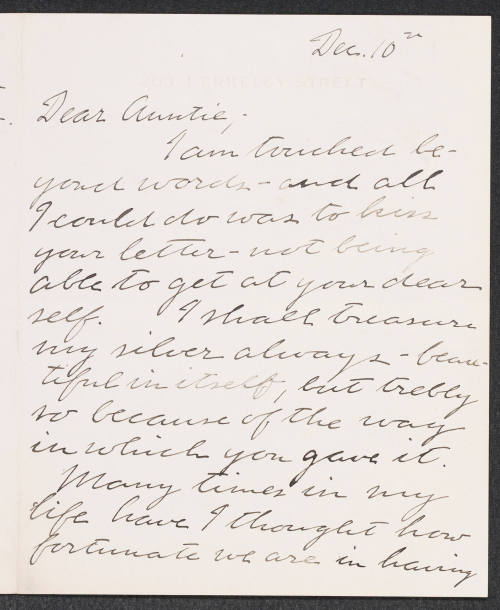 Dec. 10th
203 BERKELEY STREET
Dear Auntie,-
I am touched be-
yond words - and all
I could do was to kiss
your letter - not being
able to get at your dear
self. I shall treasure
my silver always - beau-
tiful in itself, but trebly
so because of the way
in which you gave it.
Many times in my
life have I thought how
fortunate we are in having